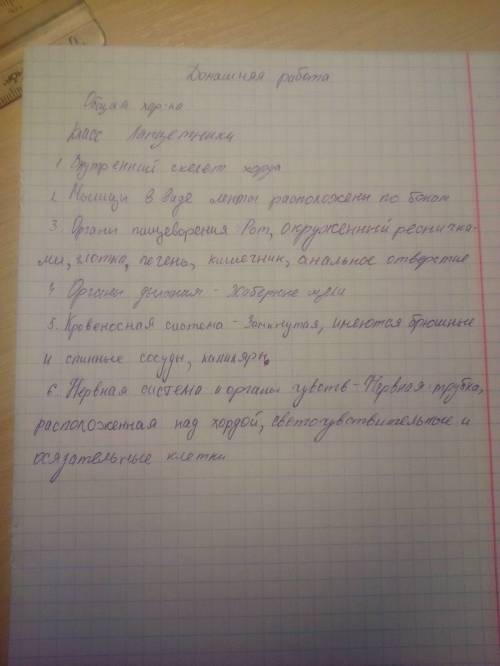 Домашняя работа
Общая хар-ка
Класс Ланцетники
1. Внутренний скелет хорда
2. Мышцы в виде ленты расположены по бокам
3. Органы пищеворения Рот, окруженный ресничка-
ми, глотка, печень, кишечник, анальное отверстие
4. Органы дыхания - Жаберные щели
5. Кровеносная система - Замкнутая, имеются брюшные
и спинные сосуды, капиляры
6. Нервная система и органы чувств - Нервная трубка,
расположенная над хордой, светочувствительные и
осязательные клетки